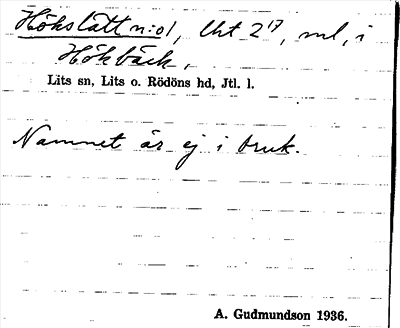 Hökslått n:o 1, lht 2¹⁷, ml, i
Hökbäck,
Lits sn, Lits o. Rödöns hd, Jtl. l.
Namnet är ej i bruk.
A. Gudmundson 1936.